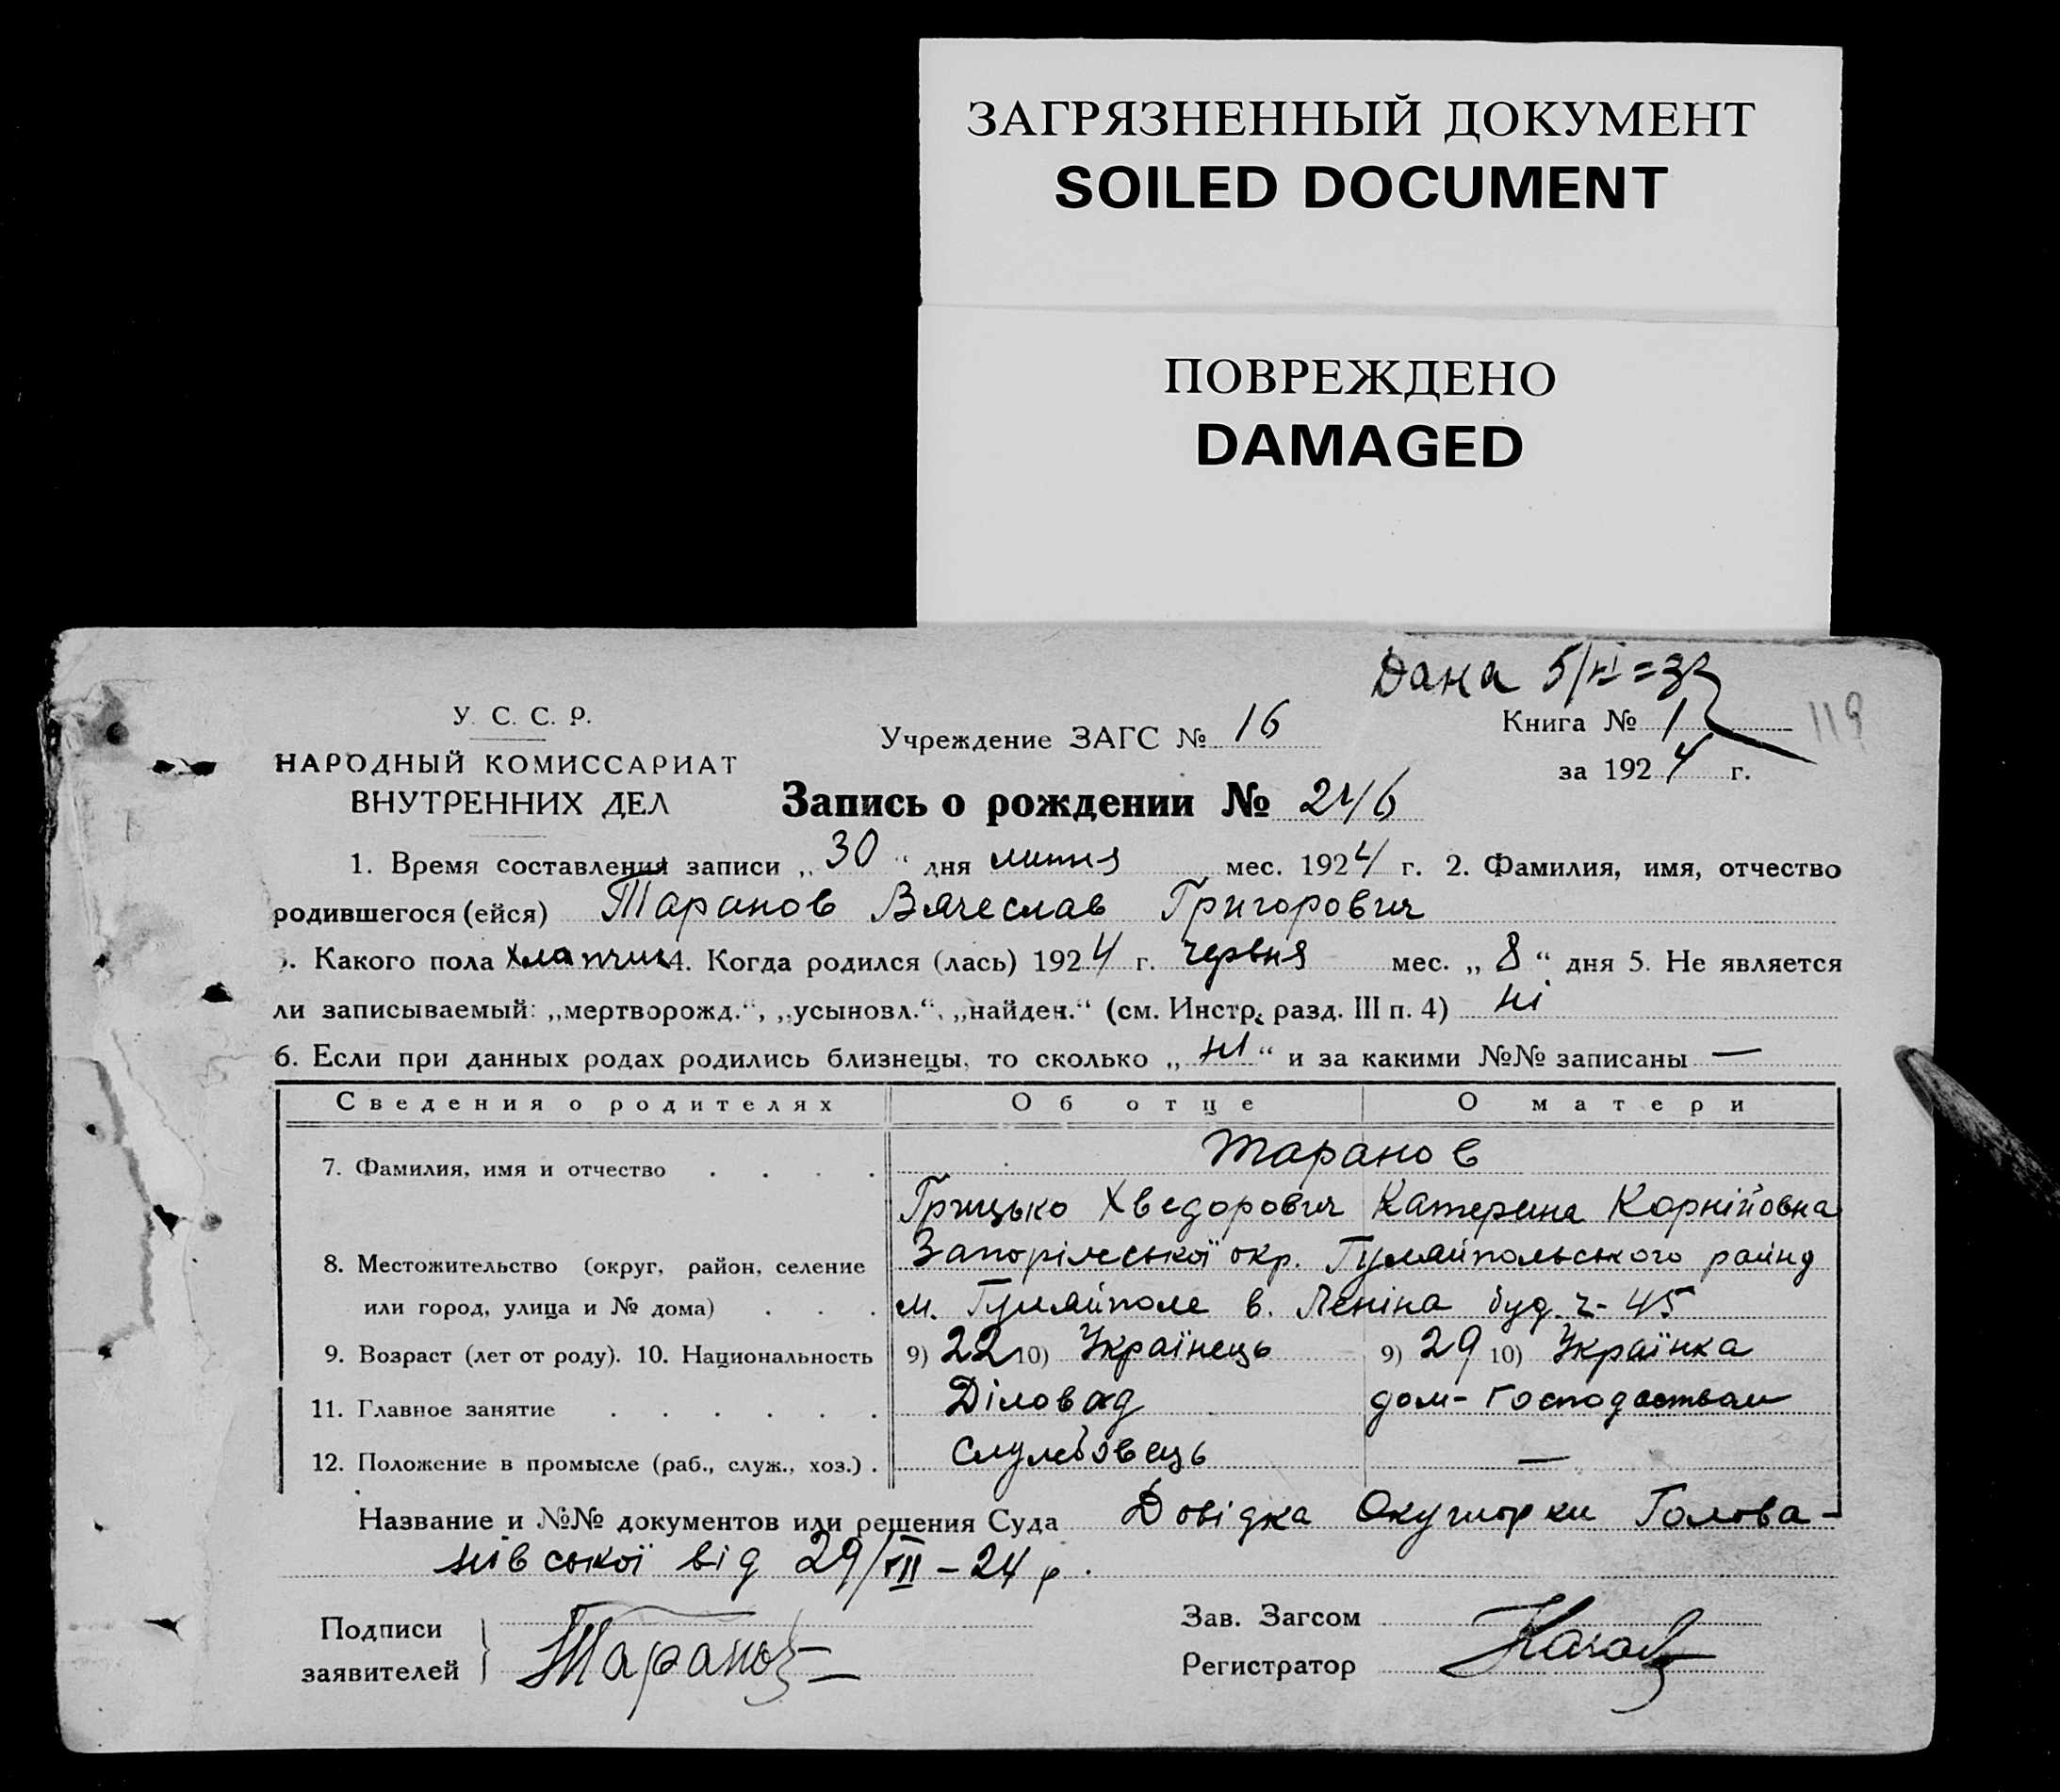 ЗАГРЯЗНЕННЫЙ ДОКУМЕНТ
SOILED DOCUMENT
ПОВРЕЖДЕНО
DAMAGED
Дана 5/VI=32
У. С. С. Р.
НАРОДНЫЙ КОМИССАРИАТ
ВНУТРЕННИХ ДЕЛ
Учреждение ЗАГС № 16
Книга № 1
119
за 1924 г.
Запись о рождении № 246
1. Время составления записи „30“ дня липня мес. 1924 г. 2. Фамилия, имя, отчество
родившегося (ейся) Таранов Вячеслав Григорович
3. Какого пола хлапчик 4. Когда родился (лась) 1924 г. червня мес. „8“ дня 5. Не является
ли записываемый: „мертворожд.“, „усыновл.“, „найден.“ (см. Инстр. разд. III п. 4) ні
6. Если при данных родах родились близнецы, то сколько „ні“ и за какими №№ записаны —
Сведения о родителях Об отце О матери
7. Фамилия, имя и отчество . . . . Таранов
Грицько Хведорович Катерина Корнійовна
8. Местожительство (округ, район, селение Запоріжської окр. Гуляйпольського району
или город, улица и № дома) . . . м. Гуляйполе в. Леніна буд. ч- 45
9. Возраст (лет от роду). 10. Национальность 9) 22 10) Українець 9) 29 10) Українка
11. Главное занятие . . . . . . Діловод дом- господаством
12. Положение в промысле (раб., служ., хоз.) . службовець —
Название и №№ документов или решения Суда Довідка Окушорки Голова-
нівської від 29/VII – 24 р.
Подписи
заявителей
Таранов
Зав. Загсом
Регистратор